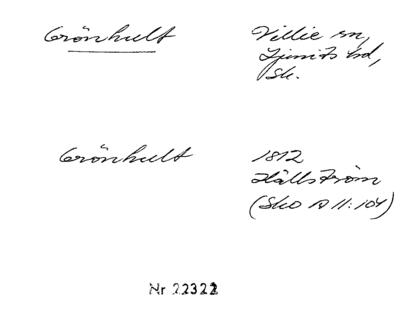 Grönhult
Villie sn,
Ljunits hd,
Sk.
Grönhult
1812
Hällström
(Sko A II:104)
Nr 22322